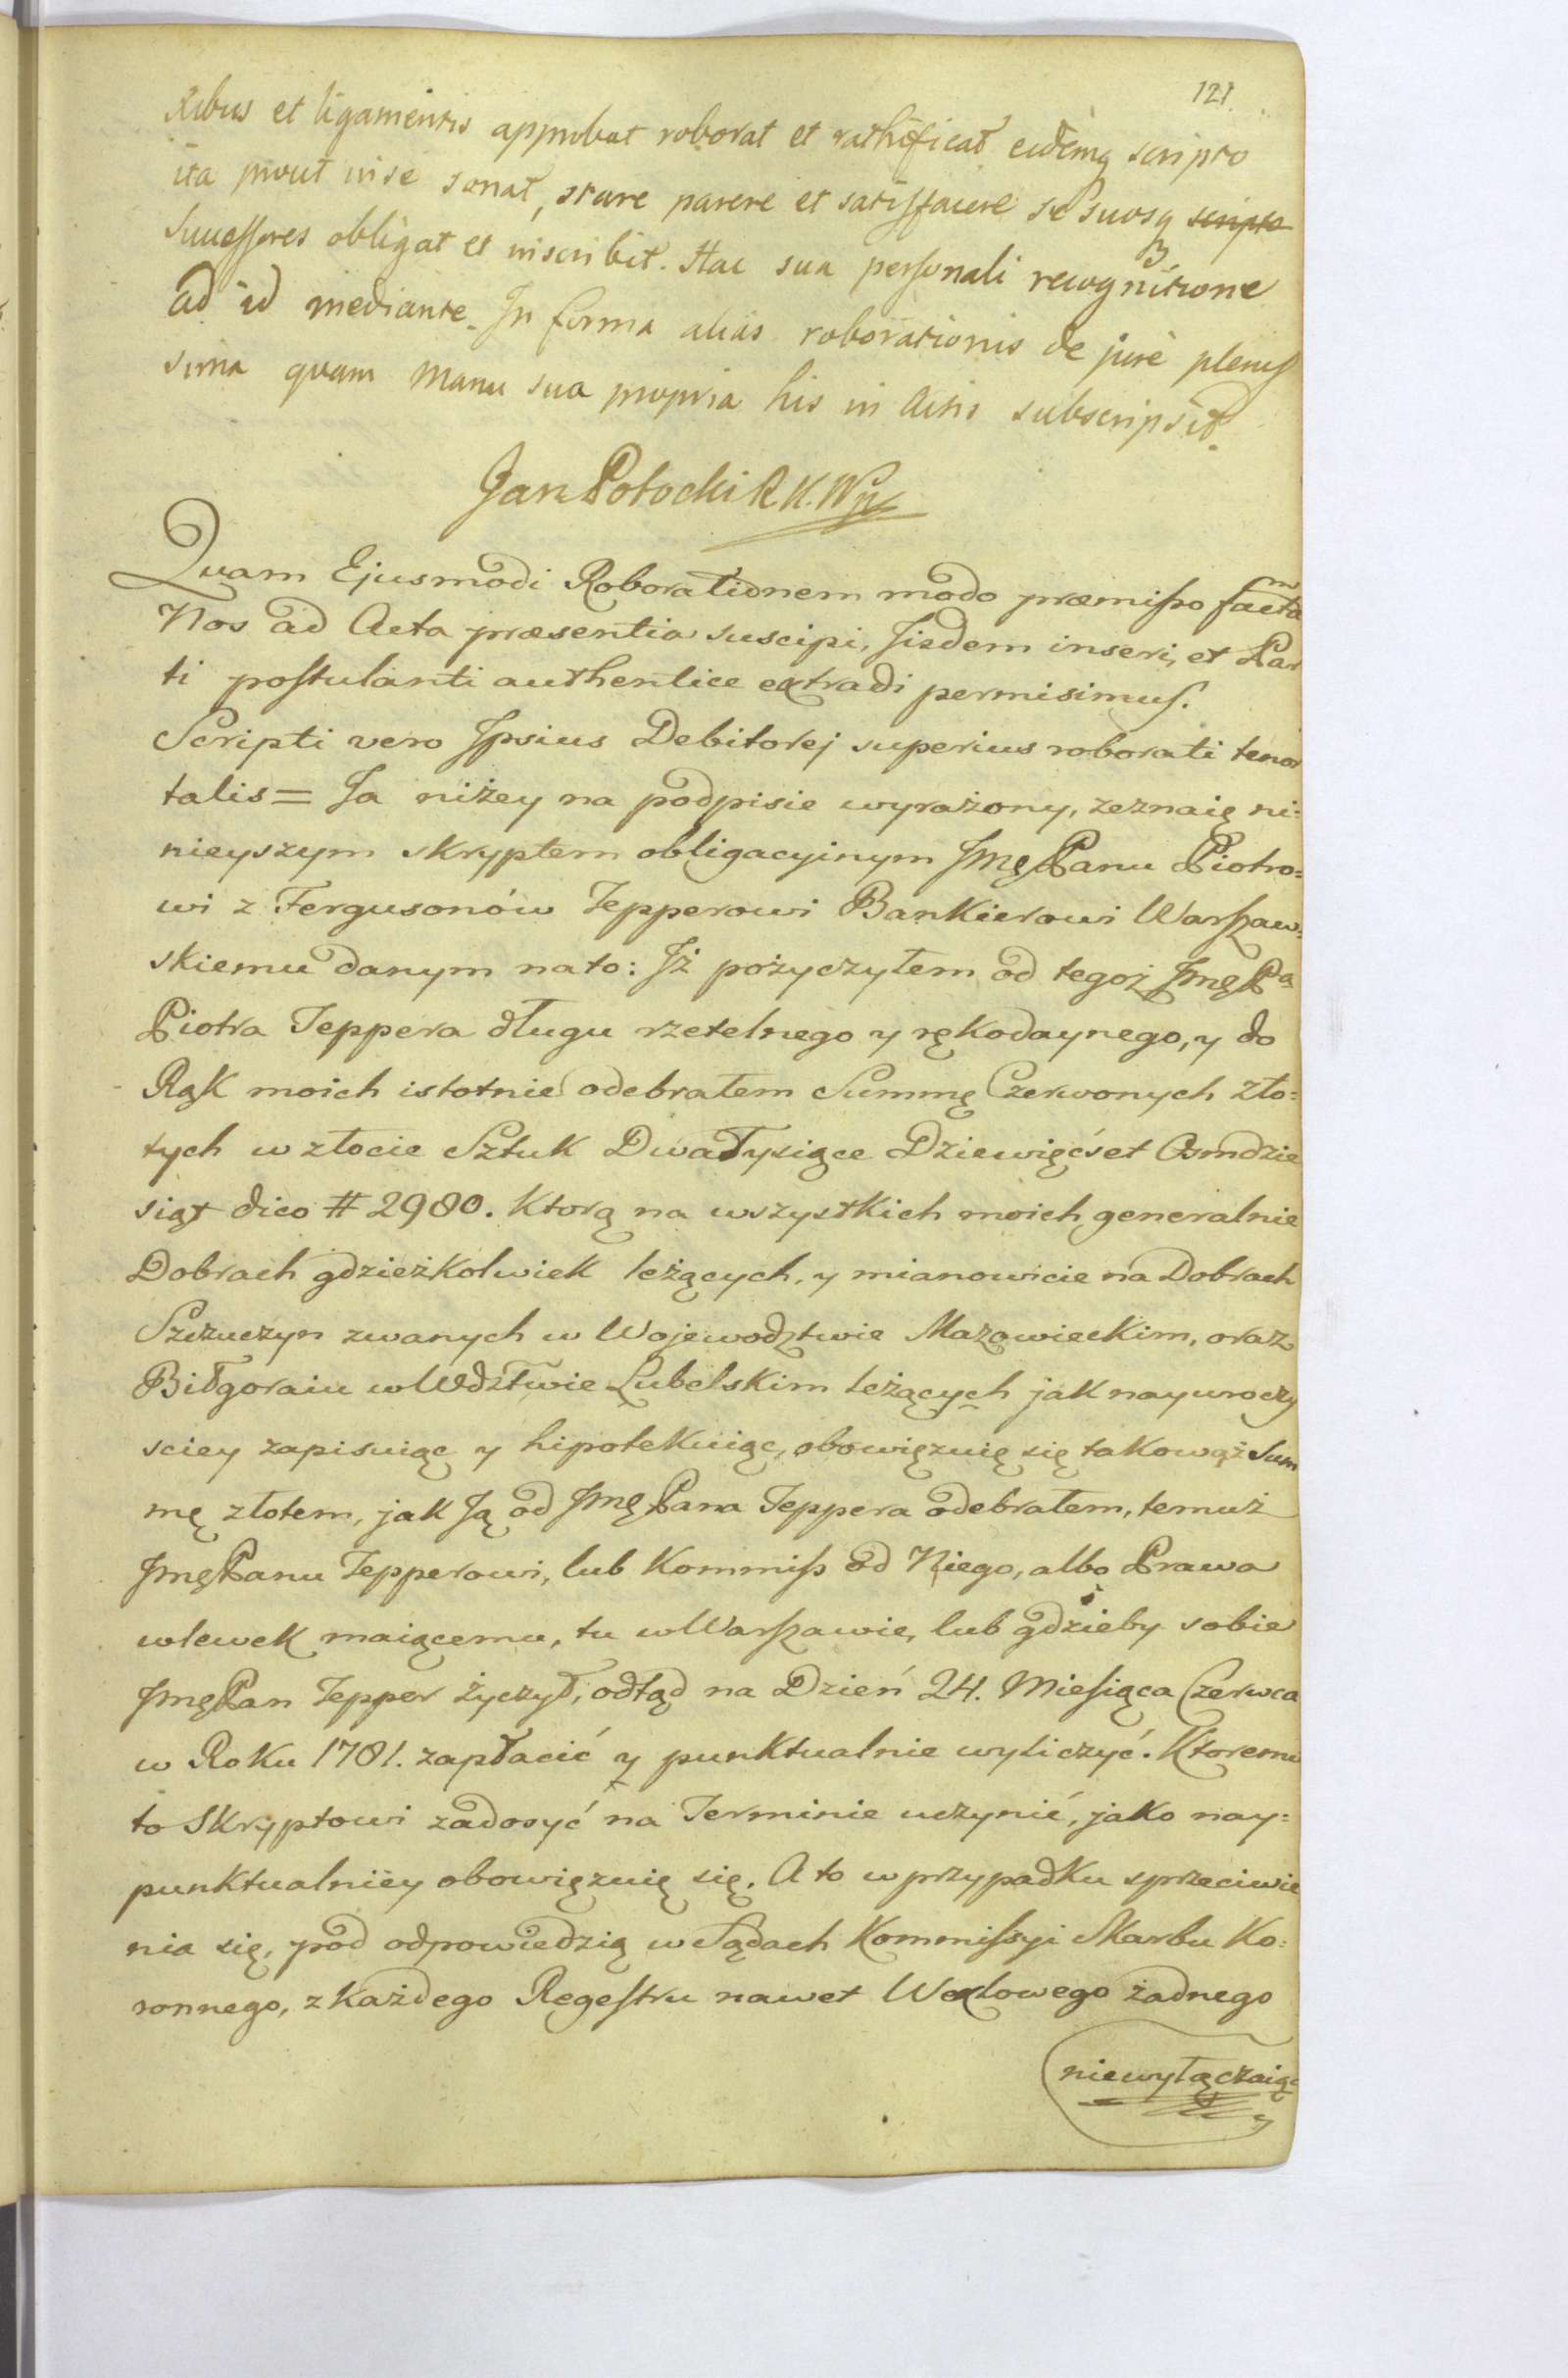 121.
ribus et ligamentis approbat roborat et rathificat eidemq scripto
ita prout in se sonat, stare parere et satisfacere se suosq scripto
Successores obligat et inscribit. Hac sua personali recognitione
ad id mediante. In forma alias roborationis de jure plenis
sima quam manu sua propria his in Actis subscripsit.
Jan Potocki R. K.
Quam Ejusmodi Roborationem modo præmisso factam
Nos ad Acta præsentia suscipi, Jisdem inseri, et Par
ti postulanti authentice extradi permisimus.
Scripti vero Ipsius Debitorej superius roborati tenor
talis = Ja niżey na podpisie wyrażony, zeznaię ni=
nieyszym skryptem obligacyinym JmgPanu Piotro=
wi z Fergusonów Tepperowi Bankierowi Warszaw=
skiemu danym na to: Jż pożyczyłem od tegoż JmgPa
Piotra Teppera długu rzetelnego y rękodaynego, y do
Rąk moich istotnie odebrałem Summę Czerwonych zło=
tych w złocie Sztuk Dwa Tysiące Dziewięćset Osmdzie
siąt dico # 2980. Ktorą na wszystkich moich generalnie
Dobrach gdzieżkolwiek leżących, y mianowicie na Dobrach
Szczuczyn zwanych w Wojewodztwie Mazowieckim, oraz
Biłgoraiu w Wdztwie Lubelskim leżących jak nayuroczy
sciey zapisuiąc y hipotekuiąc, obowięzuię się takowąż Sum
mę złotem, jak Ją od JmgPana Teppera odebrałem, temuż
JmgPanu Tepperowi, lub Kommiss od Niego, albo Prawa
wlewek maiącemu, tu w Warszawie, lub gdzieby sobie
JmgPan Tepper życzył, odtąd na Dzień 24. Miesiąca Czerwca
w Roku 1781. zapłacić y punktualnie wyliczyć. Ktoremu
to Skryptowi zadosyć na Terminie uczynić, jako nay=
punktualniey obowięzuię się. A to w przypadku sprzeciwie
nia się, pod odpowiedzią w Sądach Kommissyi Skarbu Ko=
ronnego, z każdego Regestru nawet Wexlowego żadnego
niewyłączaiąc